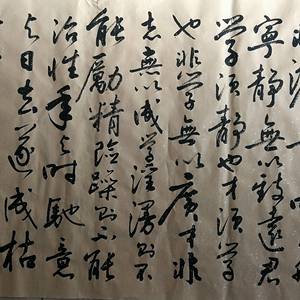 寧靜無以致遠君
學須靜也才須學
也非學無以廣才非
志無以成學淫漫則不
能勵精險躁則不能
治性年與時馳意
與日去遂成枯